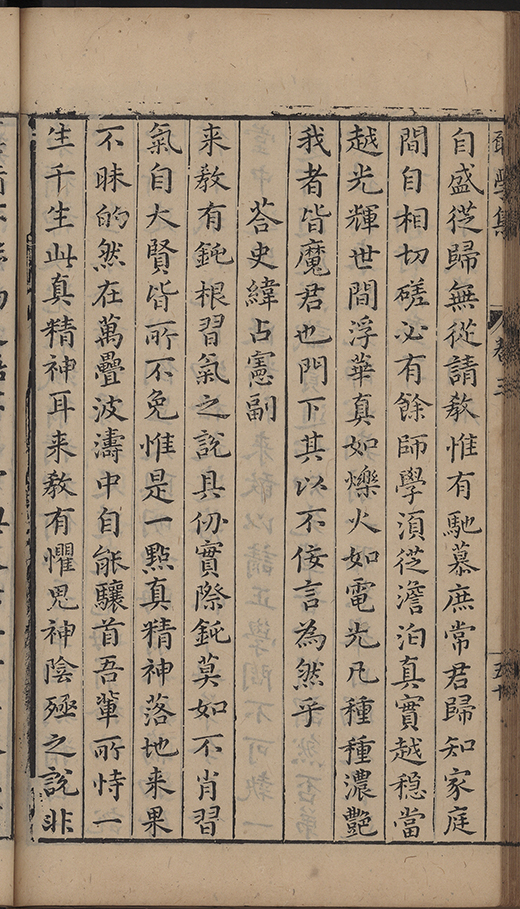 自盛從歸無從請教惟有馳慕庶常君歸知家庭
間自相切磋必有餘師學須從澹泊真實越穩當
越光輝世間浮華真如爍火如電光凡種種濃艷
我者皆魔君也門下其以不佞言為然乎
荅史緯占憲副
来教有鈍根習氣之說具仞實際鈍莫如不肖習
氣自大賢皆所不免惟是一點真精神落地来果
不昧的然在萬疊波濤中自能驤首吾輩所恃一
生千生此真精神耳来教有懼鬼神陰殛之說非
學集
卷三
五十